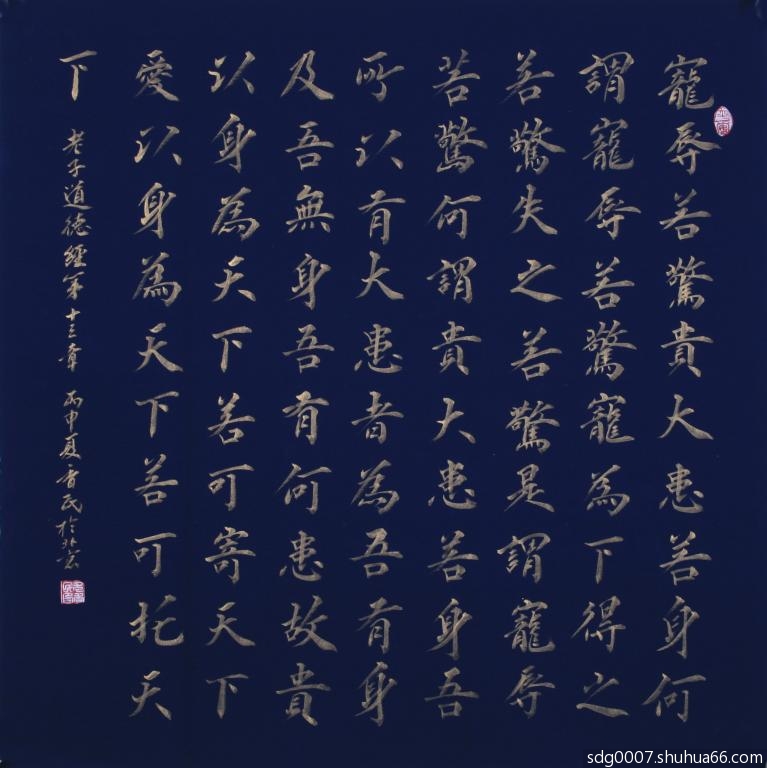 寵辱若驚貴大患若身何
謂寵辱若驚寵為下得之
若驚失之若驚是謂寵辱
若驚何謂貴大患若身吾
所以有大患者為吾有身
及吾無身吾有何患故貴
以身為天下若可寄天下
愛以身為天下若可托天
下
老子道德經第十三章 丙申夏 民於北京
sdg0007.shuhua66.com